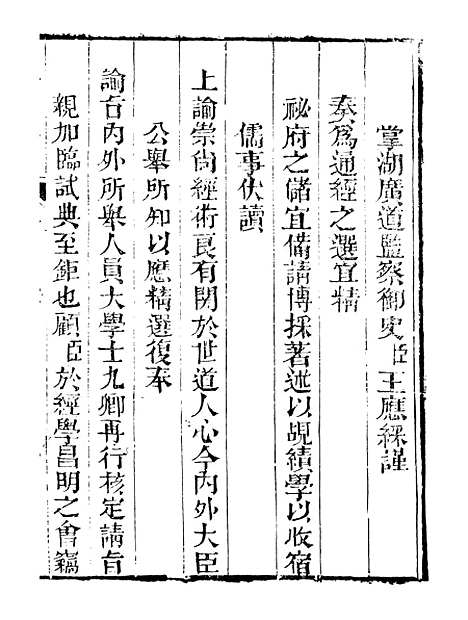 掌湖廣道監察御史臣王應綵謹
奏爲通經之選宜精
祕府之儲宜備請博採著述以覘績學以收宿
儒事伏讀
上諭崇尚經術良有關於世道人心今內外大臣
公舉所知以應精選復奉
諭旨內外所舉人員大學士九卿再行核定請旨
親加臨試典至鉅也顧臣於經學昌明之會竊